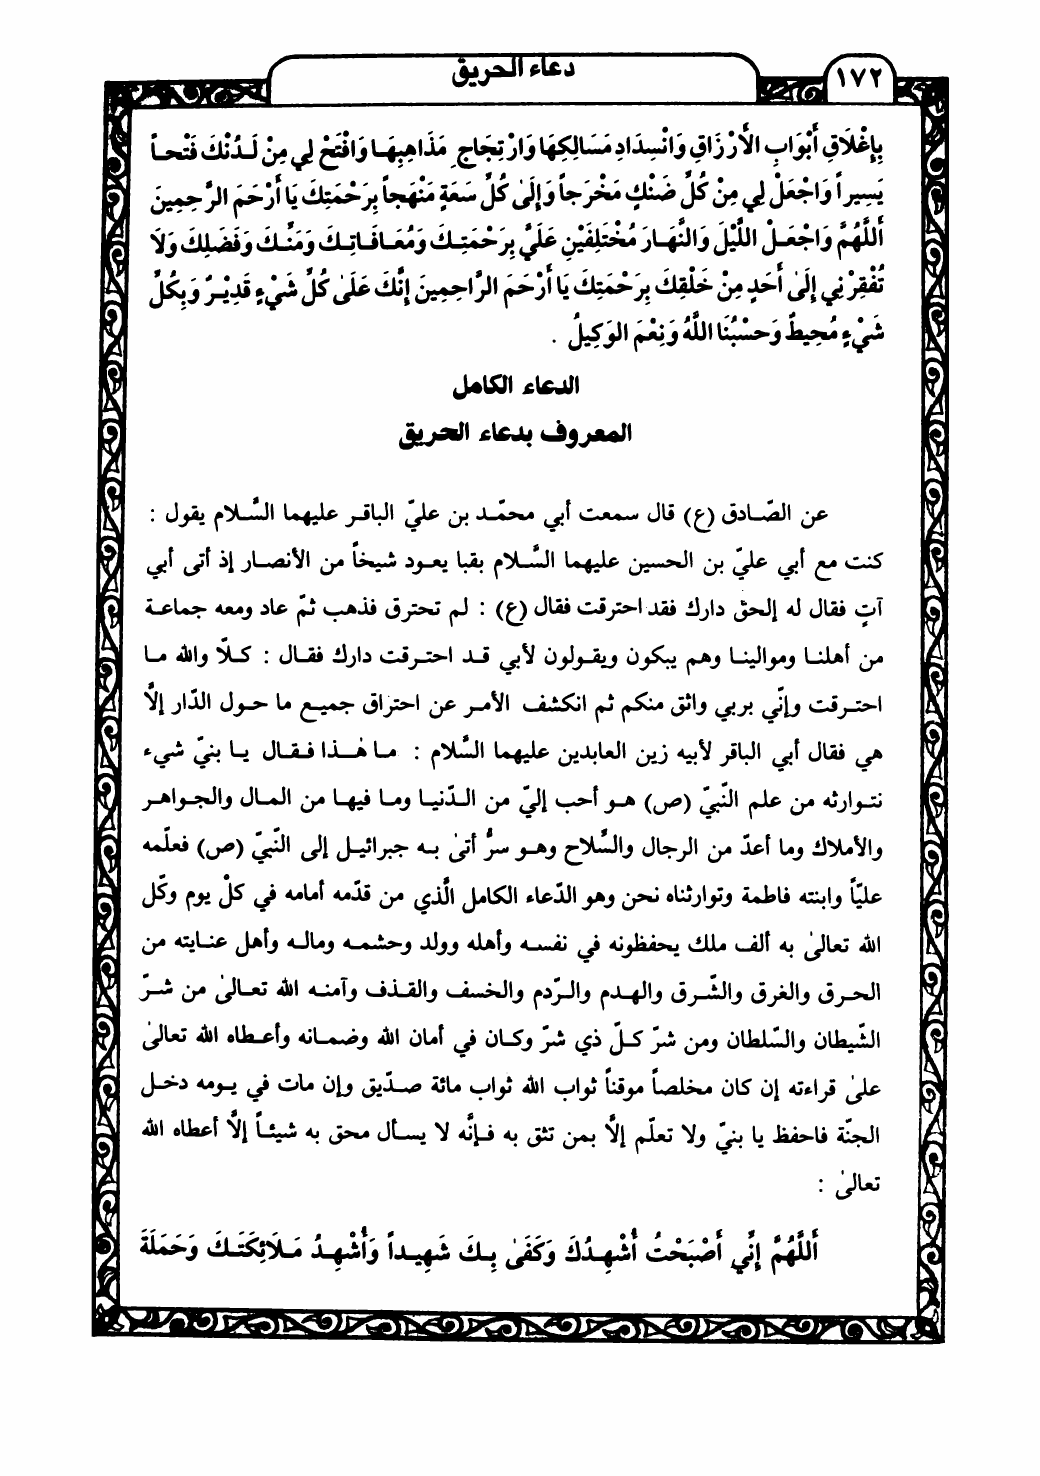 دعاء الحريق
١٧٢
بِإِغْلَاقِ أَبْوَابِ الأَرْزَاقِ وَانْسِدَادِ مَسَالِكِهَا وَارْتِجَاجِ مَذَاهِبِهَا وَافْتَحْ لِي مِنْ لَدُنْكَ فَتْحاً
يَسِيراً وَاجْعَلْ لِي مِنْ كُلِّ ضَنْكٍ مَخْرَجاً وَإِلَىٰ كُلِّ سَعَةٍ مَنْهَجاً بِرَحْمَتِكَ يَا أَرْحَمَ الرَّحِمِينَ
أَللَّهُمَّ وَاجْعَلْ اللَّيْلَ وَالنَّهَارَ مُخْتَلِفَيْنِ عَلَيَّ بِرَحْمَتِكَ وَمُعَافَاتِكَ وَمَنِّكَ وَفَضْلِكَ وَلَا
تُفْقِرْنِي إِلَىٰ أَحَدٍ مِنْ خَلْقِكَ بِرَحْمَتِكَ يَا أَرْحَمَ الرَّاحِمِينَ إِنَّكَ عَلَىٰ كُلِّ شَيْءٍ قَدِيْرٌ وَبِكُلِّ
شَيْءٍ مُحِيطٌ وَحَسْبُنَا اللَّهُ وَنِعْمَ الوَكِيلُ .
الدعاء الكامل
المعروف بدعاء الحريق
عن الصّادق (ع) قال سمعت أبي محمّد بن عليّ الباقر عليهما السَّلام يقول :
كنت مع أبي عليّ بن الحسين عليهما السَّلام بقبا يعود شيخاً من الأنصار إذ أتى أبي
آتٍ فقال له إلحق دارك فقد احترقت فقال (ع) : لم تحترق فذهب ثمّ عاد ومعه جماعة
من أهلنا وموالينا وهم يبكون ويقولون لأبي قد احترقت دارك فقال : كلّا والله ما
احترقت وإنّي بربي واثق منكم ثم انكشف الأمر عن احتراق جميع ما حول الدّار إلَّا
هي فقال أبي الباقر لأبيه زين العابدين عليهما السَّلام : ما هٰذا فقال يا بنيّ شيء
نتوارثه من علم النّبيّ (ص) هو أحب إليّ من الدّنيا وما فيها من المال والجواهر
والأملاك وما أعدّ من الرجال والسِّلاح وهو سرٌّ أتىٰ به جبرائيل إلى النّبيّ (ص) فعلّمه
عليّاً وابنته فاطمة وتوارثناه نحن وهو الدّعاء الكامل الَّذي من قدّمه أمامه في كلّ يوم وكّل
الله تعالىٰ به ألف ملك يحفظونه في نفسه وأهله وولد وحشمه وماله وأهل عنايته من
الحرق والغرق والشّرق والهدم والرّدم والخسف والقذف وآمنه الله تعالىٰ من شرّ
الشّيطان والسّلطان ومن شرّ كلّ ذي شرّ وكان في أمان الله وضمانه وأعطاه الله تعالىٰ
علىٰ قراءته إن كان مخلصاً موقناً ثواب الله ثواب مائة صدّيق وإن مات في يومه دخل
الجنّة فاحفظ يا بنيّ ولا تعلّم إلَّا بمن تثق به فإنَّه لا يسأل محق به شيئاً إلَّا أعطاه الله
تعالىٰ :
أَللَّهُمَّ إِنِّي أَصْبَحْتُ أُشْهِدُكَ وَكَفَىٰ بِكَ شَهِيداً وَأُشْهِدُ مَلَائِكَتَكَ وَحَمَلَةَ